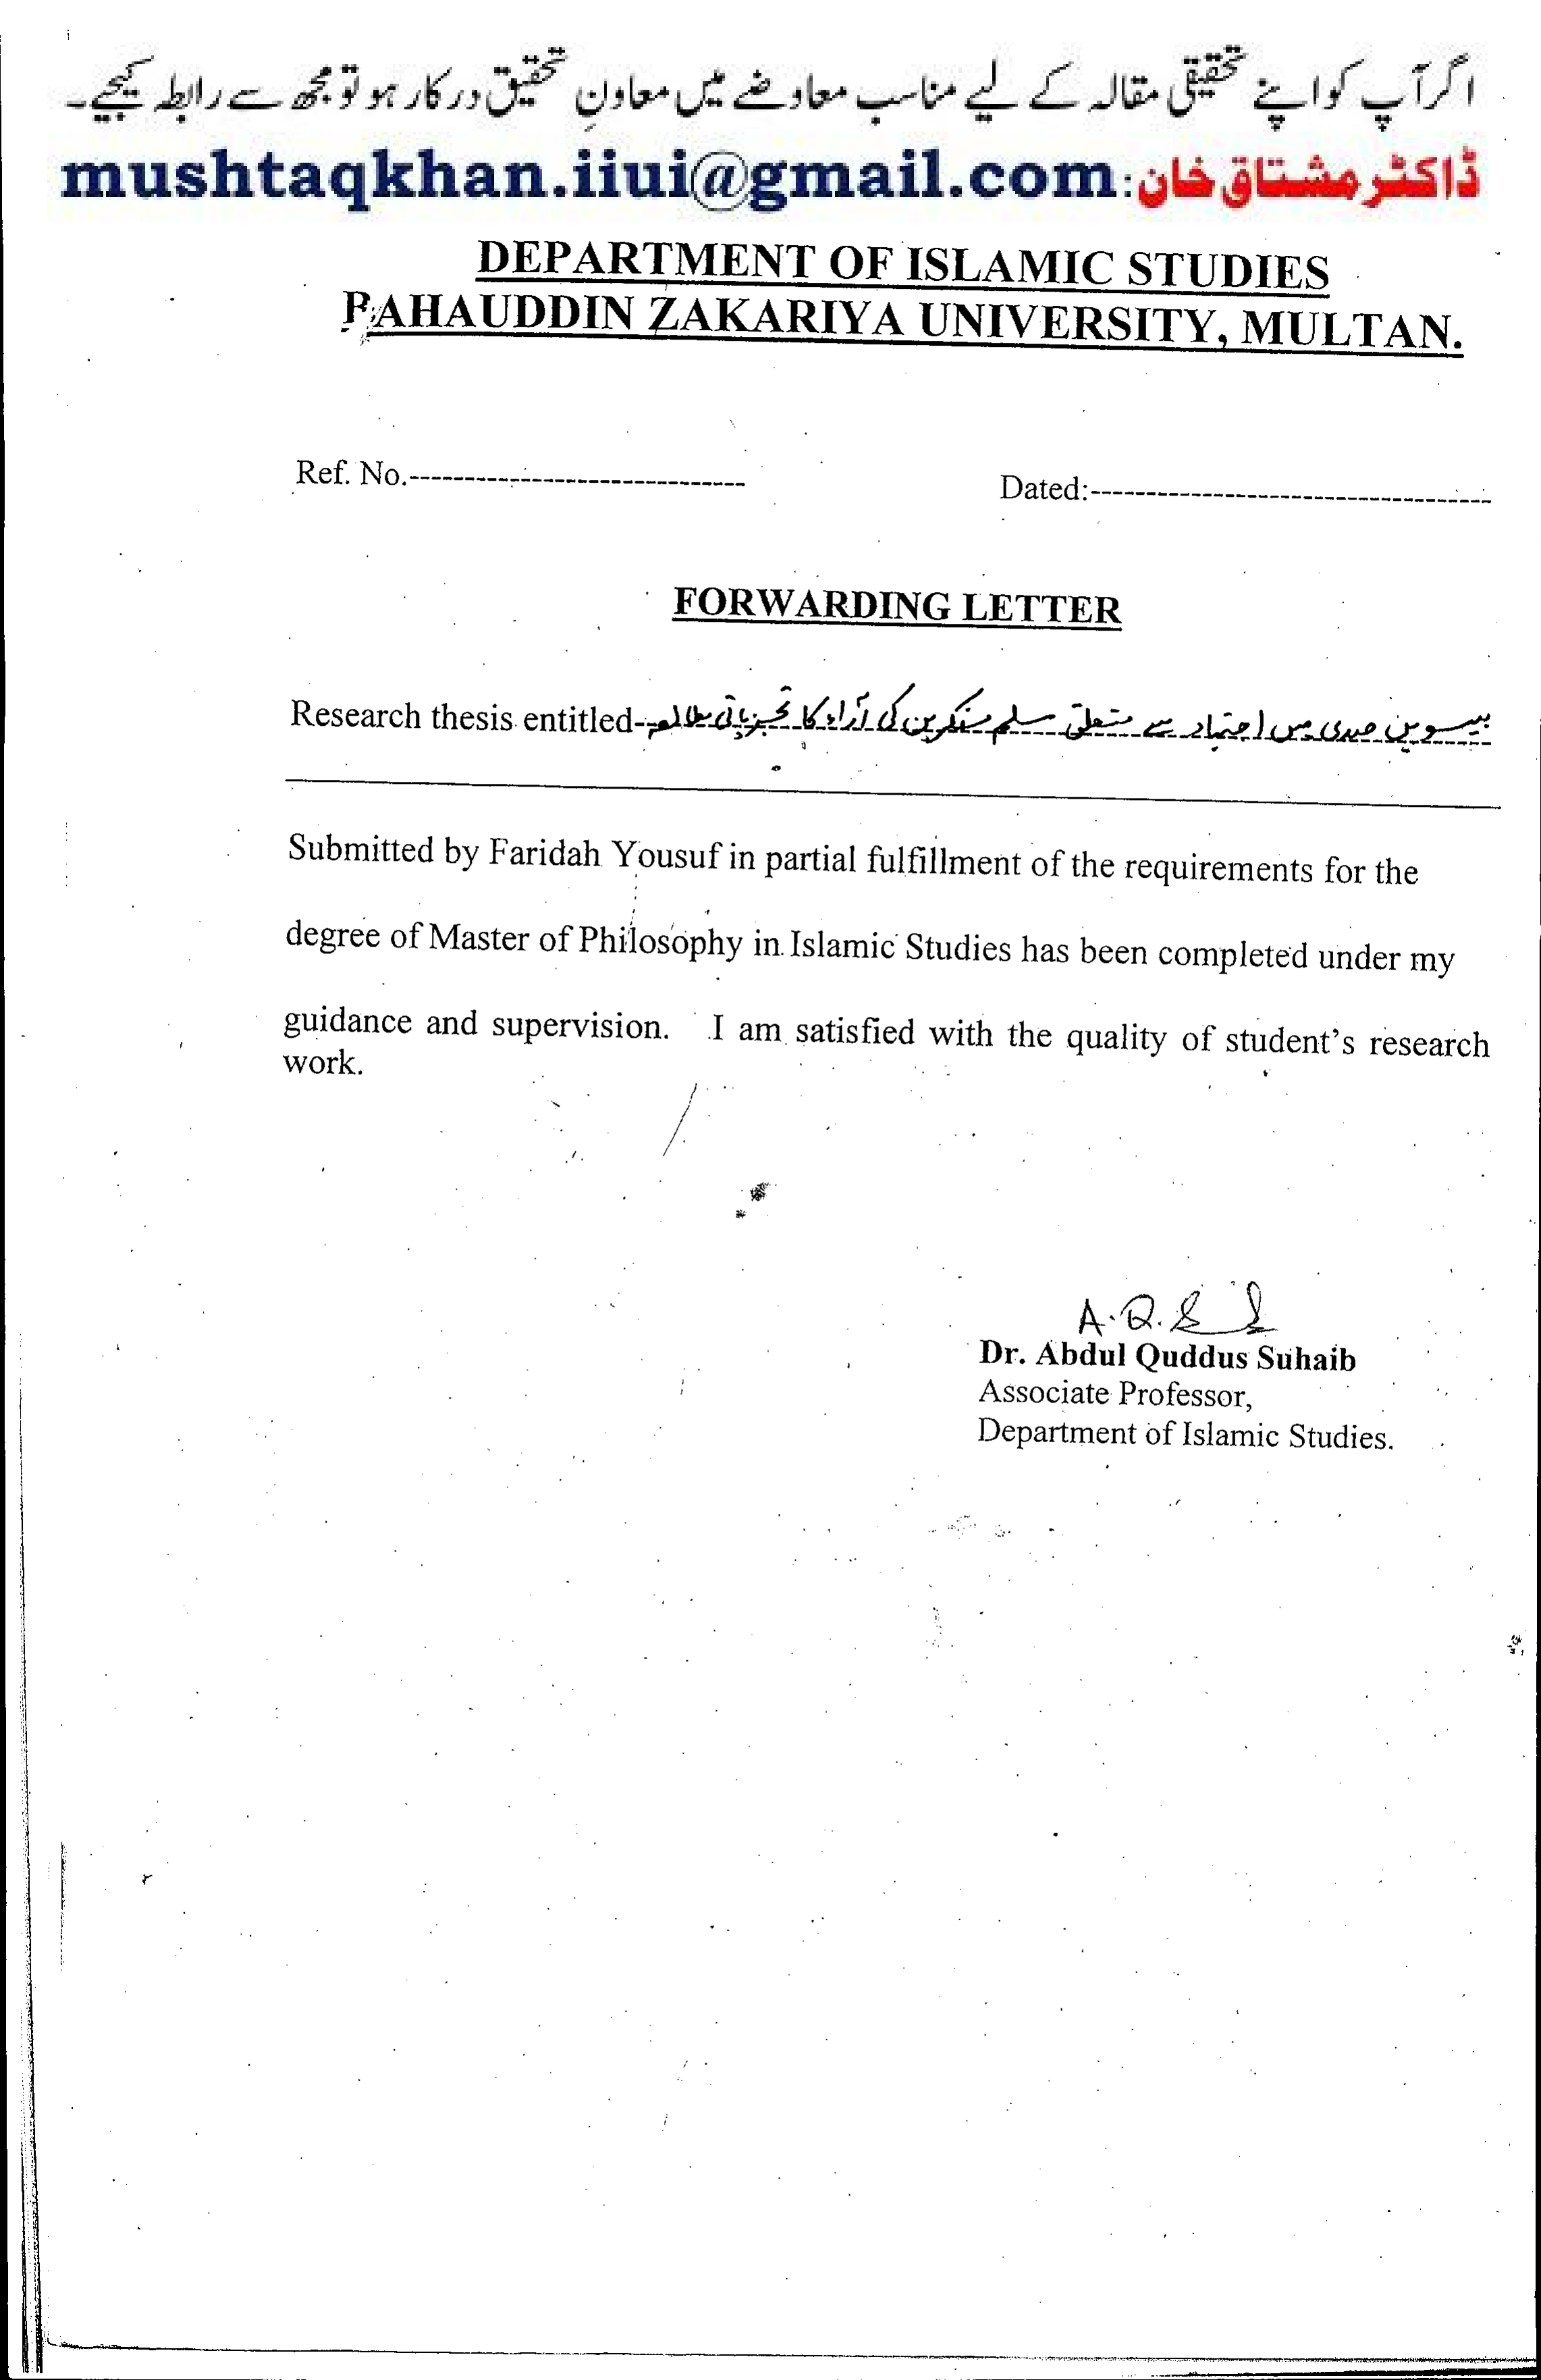 اگر آپ کو اپنے تحقیقی مقالہ کے لیے مناسب معاوضے میں معاونِ تحقیق درکار ہو تو مجھ سے رابطہ کیجیے۔
ڈاکٹر مشتاق خان: mushtaqkhan.iiui@gmail.com
DEPARTMENT OF ISLAMIC STUDIES
BAHAUDDIN ZAKARIYA UNIVERSITY, MULTAN.
Ref. No.-------------------------------- Dated:-------------------------------------
FORWARDING LETTER
Research thesis entitled- بیسویں صدی میں اجتہاد سے متعلق مسلم مفکرین کی آراء کا تجزیاتی مطالعہ
Submitted by Faridah Yousuf in partial fulfillment of the requirements for the
degree of Master of Philosophy in Islamic Studies has been completed under my
guidance and supervision. I am satisfied with the quality of student's research
work.
A.Q.
Dr. Abdul Quddus Suhaib
Associate Professor,
Department of Islamic Studies.